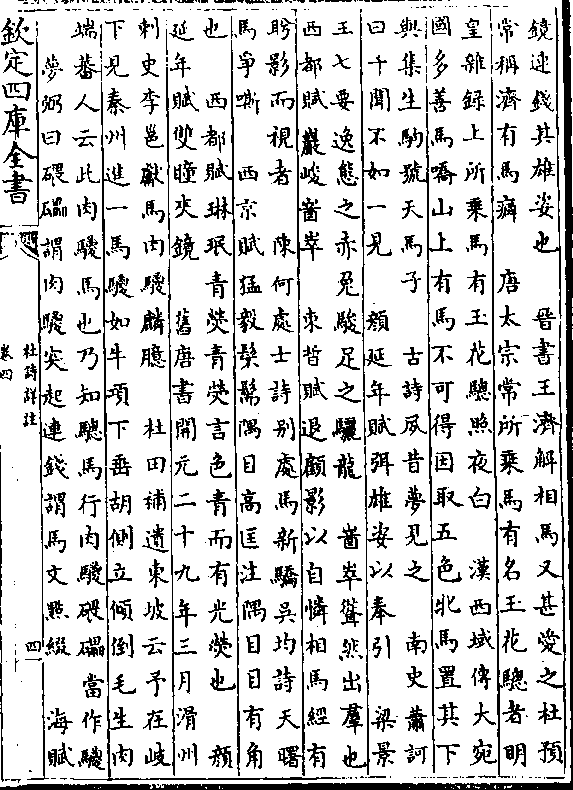 鏡連錢其雄姿也　晉書王濟解相馬又甚愛之杜預
常稱濟有馬癖　唐太宗常所乘馬有名玉花驄者明
皇雜録上所乘馬有玉花驄照夜白　漢西域傳大宛
國多善馬嶲山上有馬不可得因取五色牝馬置其下
與集生駒號天馬子　古詩夙昔夢見之　南史蕭訶
曰千聞不如一見　顔延年賦弭雄姿以奉引　梁景
王七要逸態之赤兎駿足之驪龍　崷崒聳然出羣也
西都賦巖峻崷崒　束晳賦退顧影以自憐相馬經有
盻影而視者　陳何處士詩别處馬新驕吳均詩天曙
馬爭嘶　西京賦猛毅髬髵隅目高匡注隅目目有角
也　西都賦琳珉青熒青熒言色青而有光熒也　顔
延年賦雙瞳夾鏡　舊唐書開元二十九年三月滑州
刺史李邕獻馬肉騣麟臆　杜田補遺東坡云予在岐
下見秦州進一馬騣如牛項下垂胡側立傾倒毛生肉
端蕃人云此肉騣馬也乃知驄馬行肉騣碨礧當作騣
夢弼曰碨礧謂肉騣突起連錢謂馬文㸃綴　海賦
欽定四庫全書
杜詩詳註
卷四
四